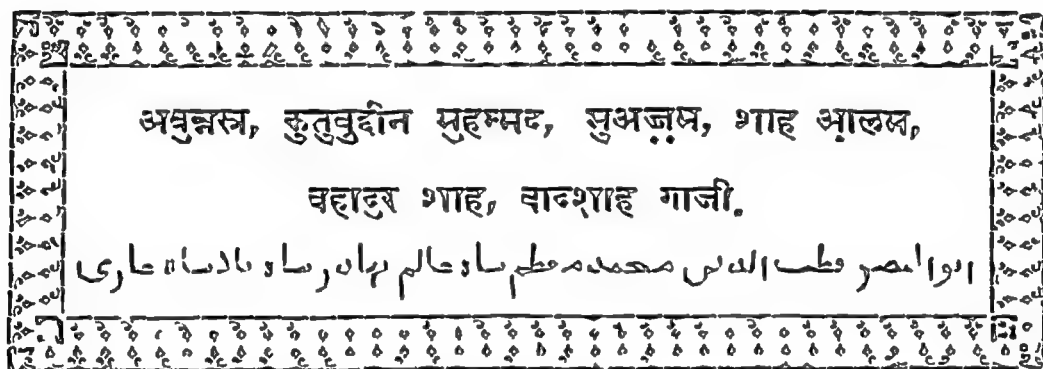 अबुन्नस्र, क़ुतुबुद्दीन मुहम्मद, मुअज़्ज़म, शाह आ़लम,
बहादुर शाह, बादशाह गाजी.
ابوالنصر قطب الدین محمد معظم شاه عالم بهادر شاه بادشاه غازی